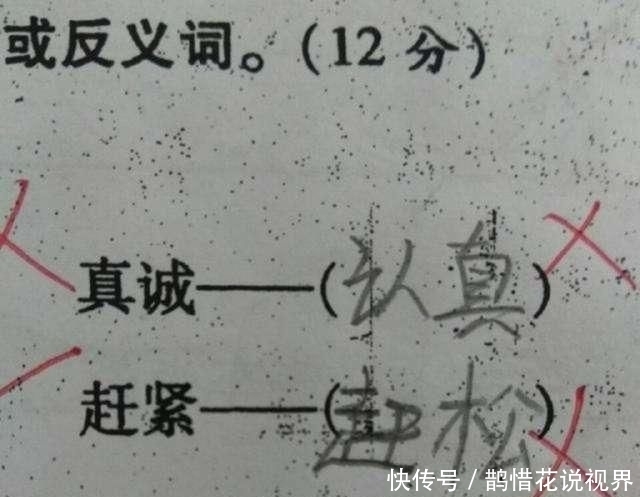 或反义词。(12 分)
真诚——(认真)
赶紧——(赶松)
快传号/鹊惜花说视界